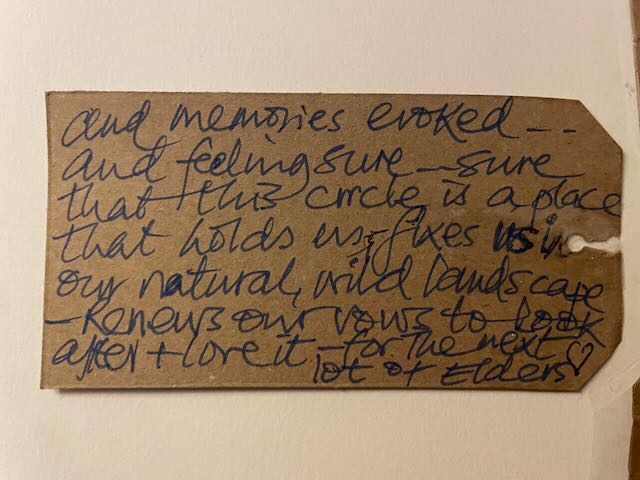 and memories evoked ---
and feeling sure - sure
that this circle is a place
that holds us, fixes us in
our natural, wild landscape
- Renews our vows to look
after + love it - for the next
lot of Elders ♡